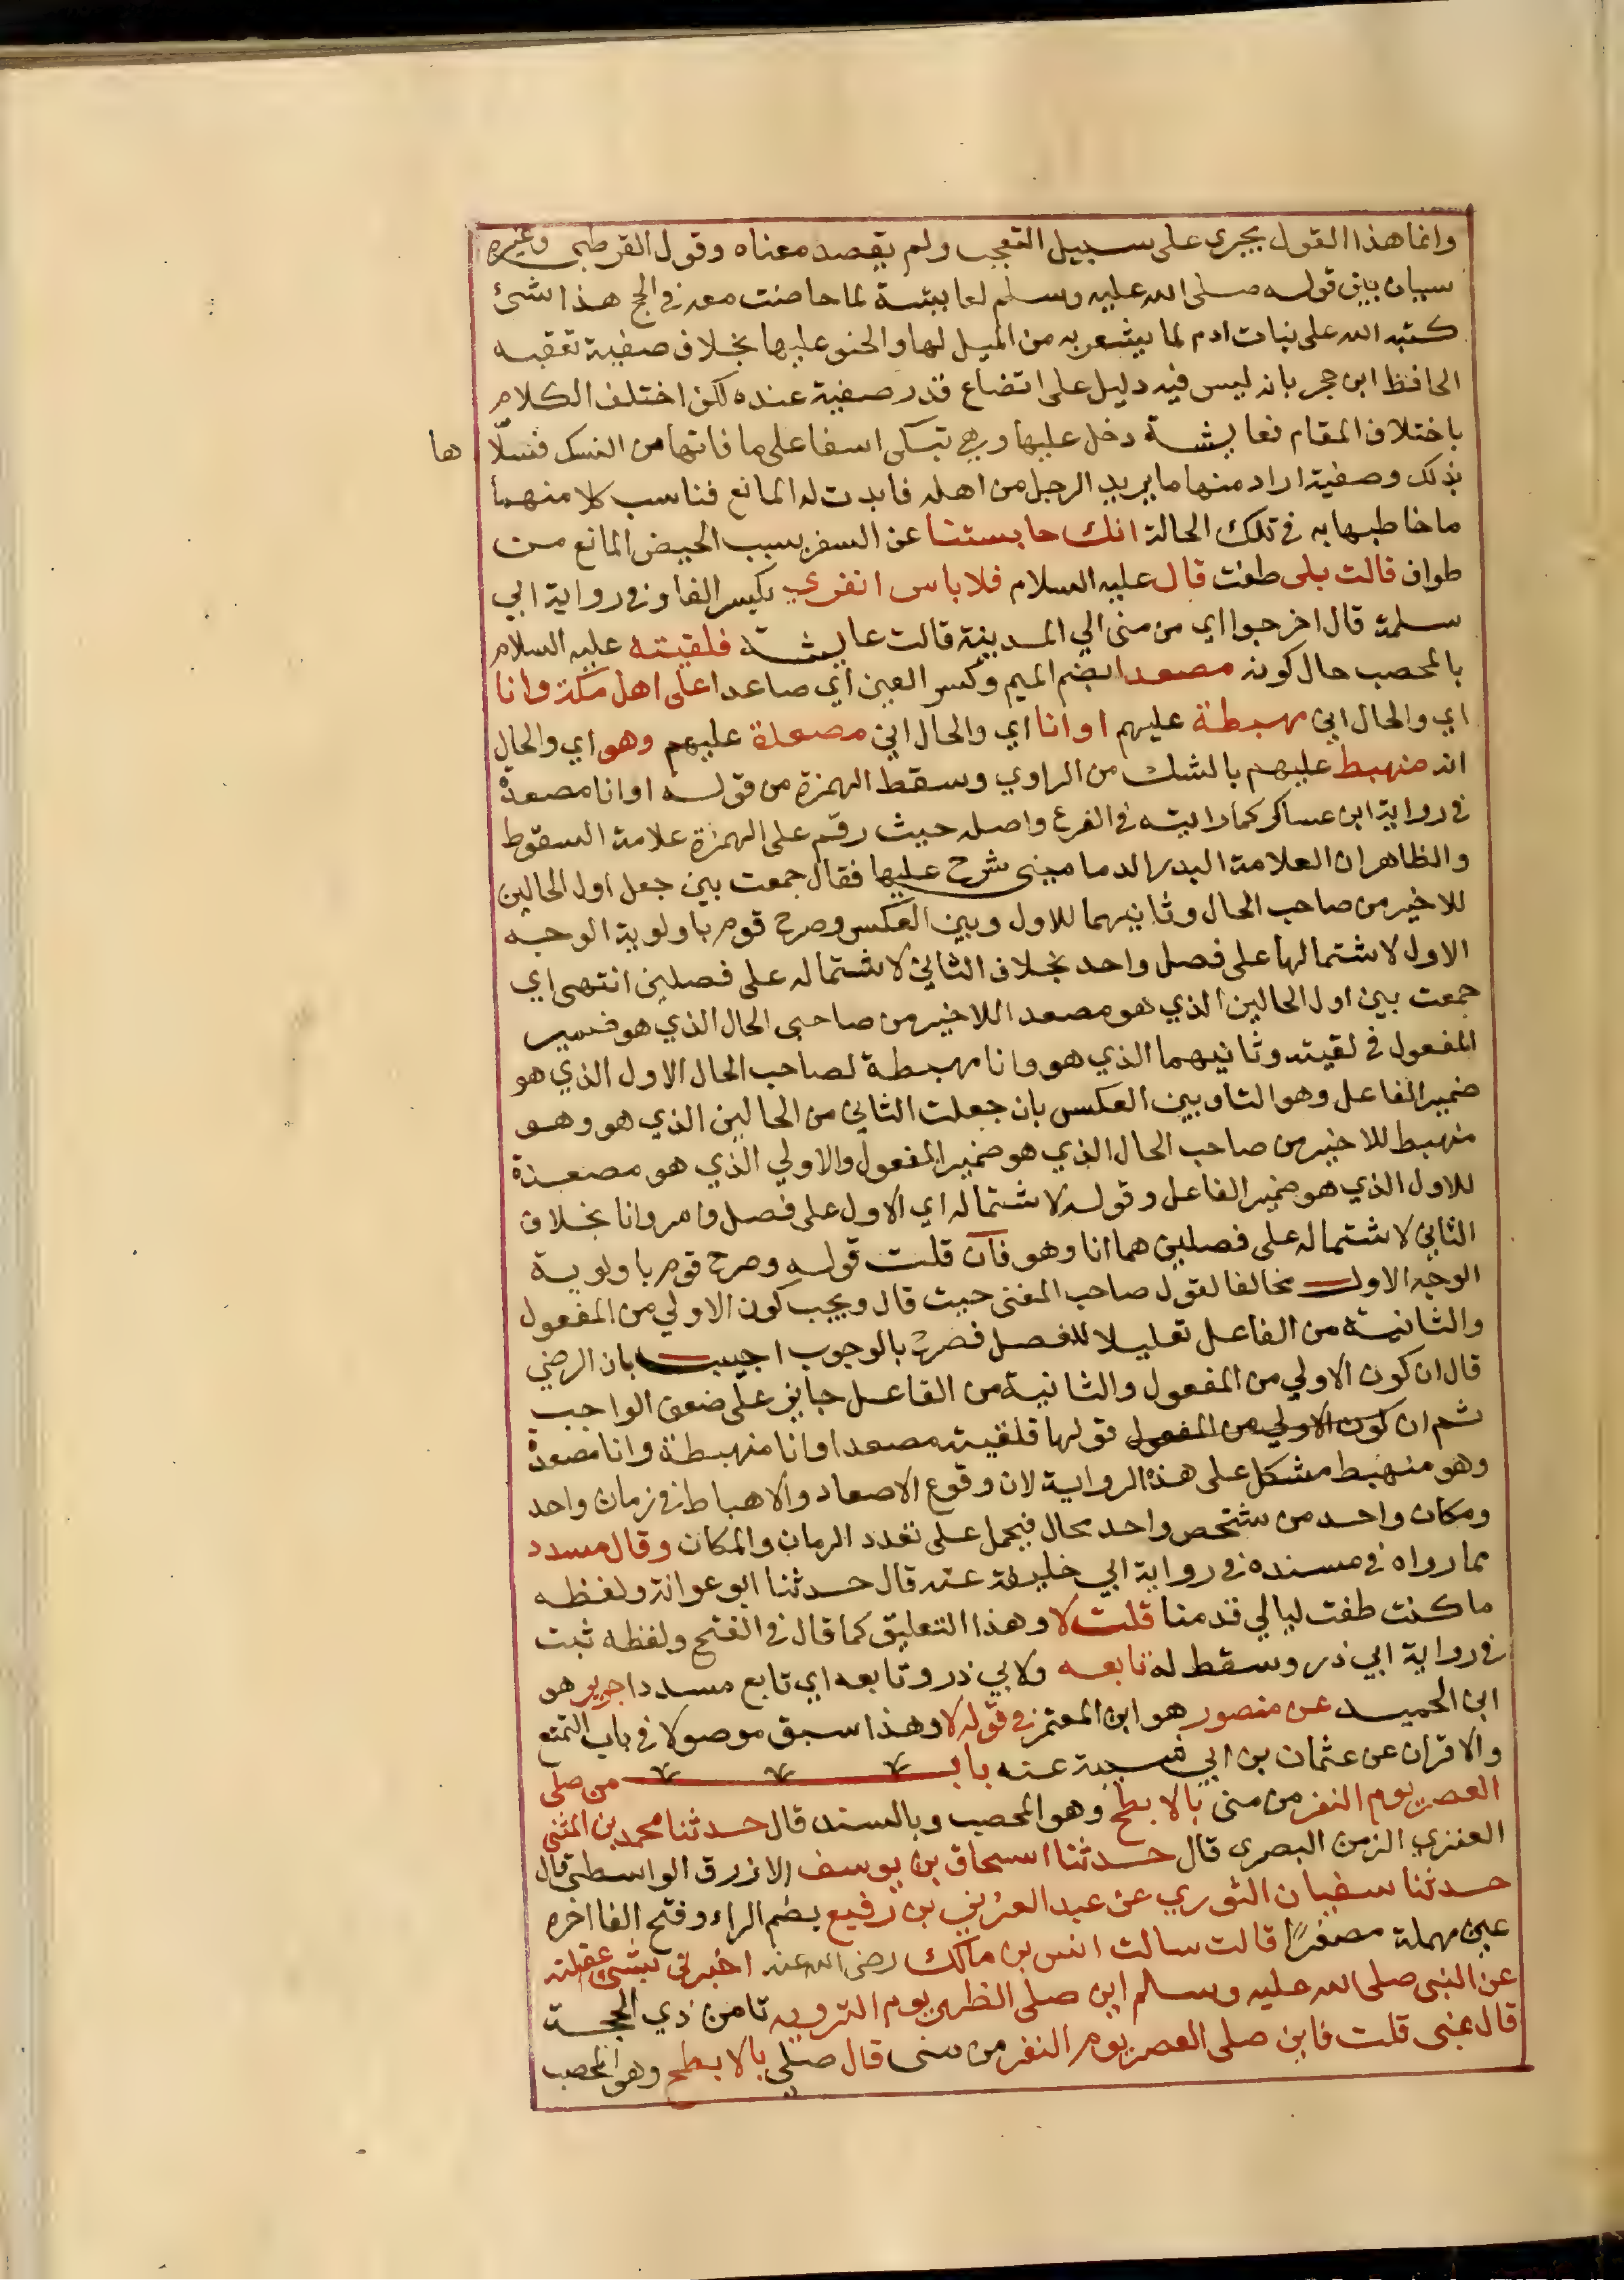 وانما هذا القول يجري على سبيل التعجب ولم يقصد معناه وقول القرطبي وغيره
سببان بين قوله صلى الله عليه وسلم لعايشة لما حاضت معه في الحج هذا شئ
كتبه الله على بنات ادم لما يشعر به من الميل لها والحنو عليها بخلاف صفية تعقبه
الحافظ ابن حجر بانه ليس فيه دليل على اتضاع قدر صفية عنده لكن اختلف الكلام
باختلاف المقام فعايشة دخل عليها وهي تبكي اسفا على ما فاتها من النسك فسلّا ها
بذلك وصفية اراد منها ما يريد الرجل من اهله فابدت له المانع فناسب كلا منهما
ما خاطبها به في تلك الحالة انك حابستنا عن السفر بسبب الحيض المانع من
طواف قالت بلى طفت قال عليه السلام فلا باس انفري بكسر الفا وفي رواية ابي
سلمة قال اخرجوا اي من منى الي المدينة قالت عايشة فلقيته عليه السلام
بالمحصب حال كونه مصعدا بضم الميم وكسر العين اي صاعدا على اهل مكة وانا
اي والحال اني مهبطة عليهم او انا اي والحال اني مصعدة عليهم وهو اي والحال
انه منهبط عليهم بالشك من الراوي وسقط الهمزة من قوله او انا مصعدة
في رواية ابن عساكر كما رايته في الفرع واصله حيث رقم على الهمزة علامة السقوط
والظاهر ان العلامة البدر الدماميني شرح عليها فقال جمعت بين جعل اول الحالين
للاخير من صاحب الحال وثانيهما للاول وبين العكس وصرح قوم باولوية الوجه
الاول لاشتمالها على فصل واحد بخلاف الثاني لاشتماله على فصلين انتهى اي
جمعت بين اول الحالين الذي هو مصعدا للاخير من صاحبي الحال الذي هو ضمير
المفعول في لقيته وثانيهما الذي هو وانا مهبطة لصاحب الحال الاول الذي هو
ضمير الفاعل وهو التا وبين العكس بان جعلت الثاني من الحالين الذي هو وهو
منهبط للاخير من صاحب الحال الذي هو ضمير المفعول والاولي الذي هو مصعدة
للاول الذي هو ضمير الفاعل وقوله لاشتماله اي الاول على فصل وامر وانا بخلاف
الثاني لاشتماله على فصلين هما انا وهو فان قلت قوله وصرح قوم باولوية
الوجه الاول مخالفا لقول صاحب المغني حيث قال ويجب كون الاولي من المفعول
والثانية من الفاعل تقليلا للفصل فصرح بالوجوب اجيب بان الرضي
قال ان كون الاولي من المفعول والثانية من الفاعل جايز على ضعف الواجب
ثم ان كون الاولي من المفعول قولها فلقيته مصعدا وانا منهبطة وانا مصعدة
وهو منهبط مشكل على هذه الرواية لان وقوع الاصعاد والاهباط في زمان واحد
ومكان واحد من شخص واحد محال فيحمل على تعدد الزمان والمكان وقال مسدد
مما رواه في مسنده في رواية ابي خليفة عنه قال حدثنا ابو عوانة ولفظه
ما كنت طفت ليالي قدمنا قلت لا وهذا التعليق كما قال في الفتح ولفظه ثبت
في رواية ابي ذر وسقط له تابعه ولابي ذر وتابعه اي تابع مسددا جرير هو
ابن الحميد عن منصور هو ابن المعتمر في قوله لا وهذا سبق موصولا في باب التمتع
والاقران عن عثمان بن ابي شيبة عنه باب من صلى
العصر يوم النفر من منى بالابطح وهو المحصب وبالسند قال حدثنا محمد بن المثنى
العنزي الزمن البصري قال حدثنا اسحاق بن يوسف الازرق الواسطي قال
حدثنا سفيان الثوري عن عبد العزيز بن رفيع بضم الراء وفتح الفا اخره
عين مهملة مصغرًا قالت سالت انس بن مالك رضي الله عنه اخبرني بشئ عقلته
عن النبي صلى الله عليه وسلم اين صلى الظهر يوم التروية ثامن ذي الحجة
قال بمنى قلت فاين صلى العصر يوم النفر من منى قال صلى بالابطح وهو المحصب